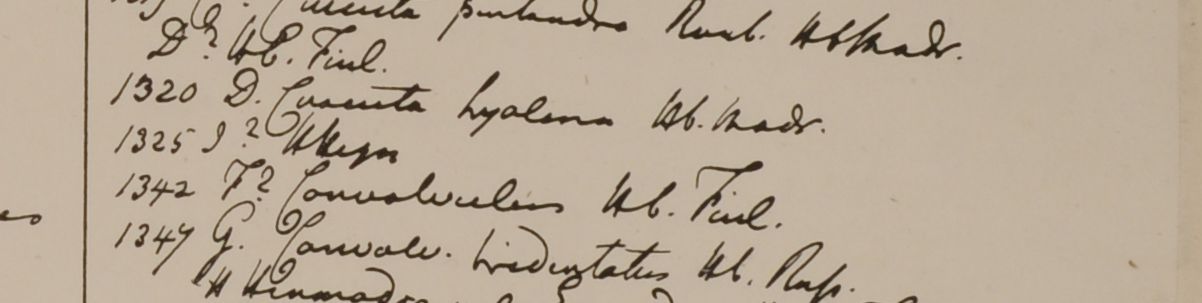 Cuscuta Roxb. Hb Madr.
D? Hb. Finl.
1320 D. Cuscuta hyalina Hb. Madr.
1325 I? H Heyn
1342 F? Convolvulus Hb. Finl.
1347 G. Convolv. tridentatus Hb. Russ.
H